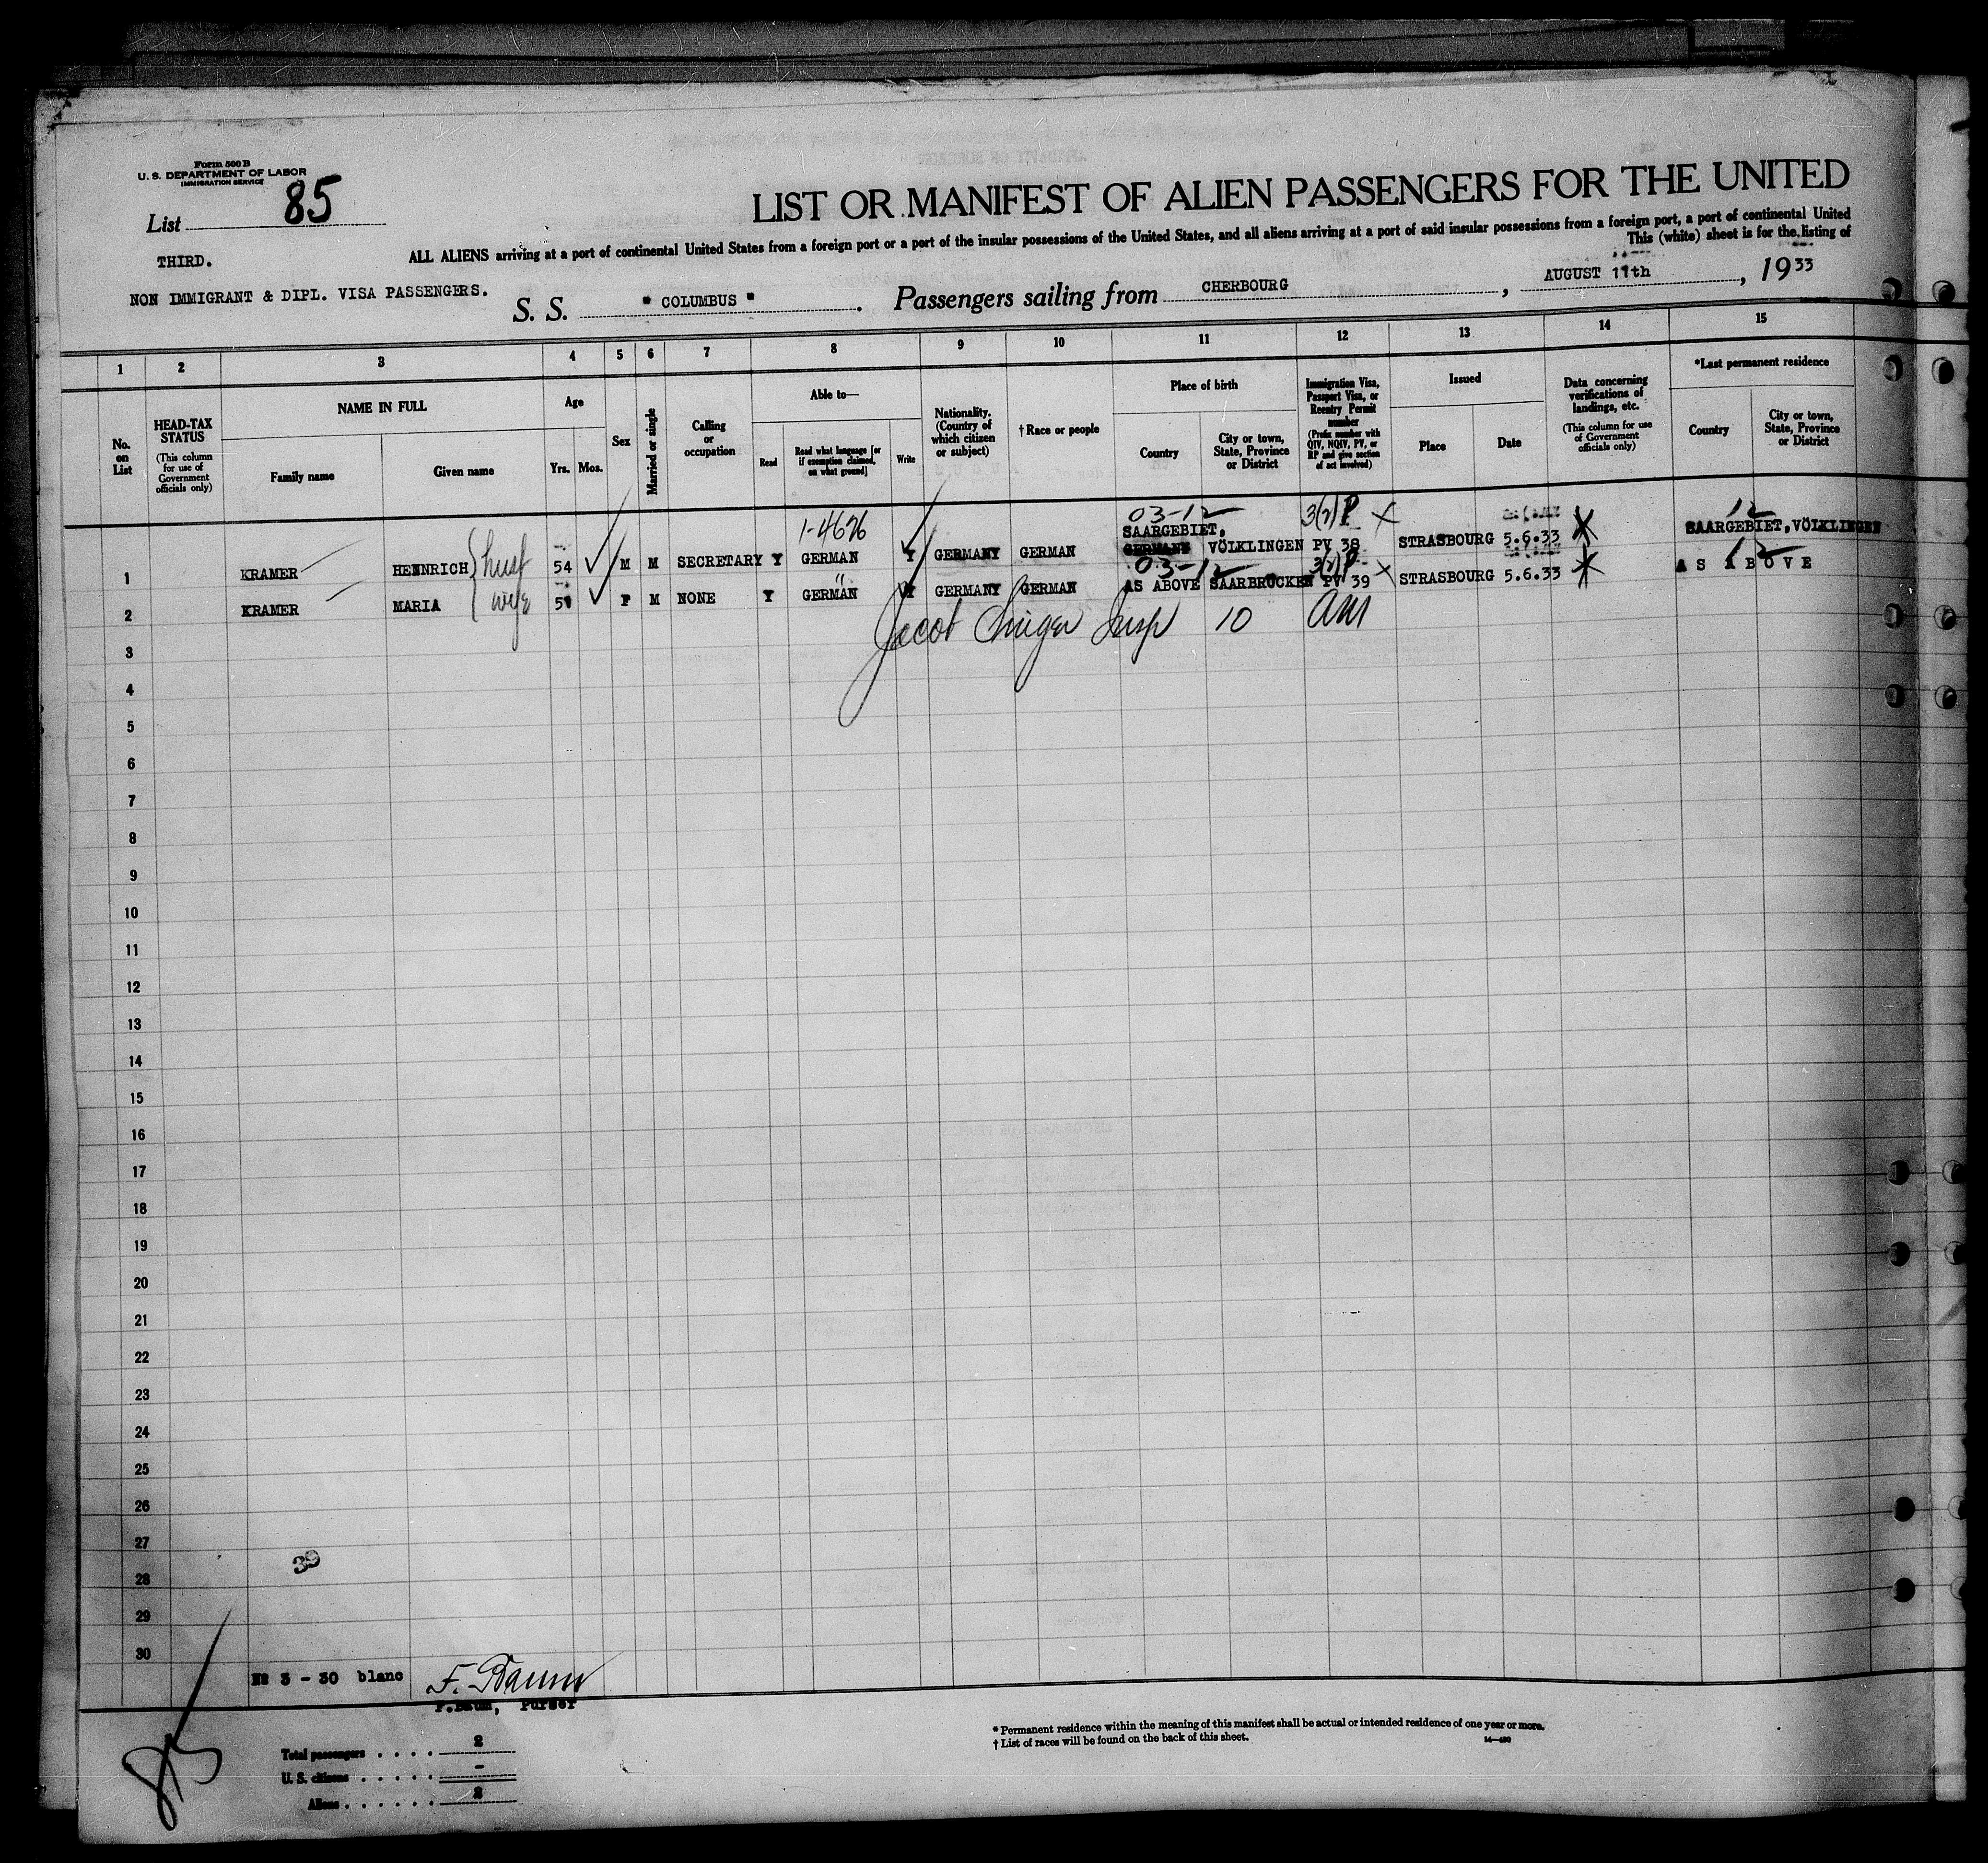 Form 500 B
U. S. DEPARTMENT OF LABOR
IMMIGRATION SERVICE
List 85
LIST OR MANIFEST OF ALIEN PASSENGERS FOR THE UNITED
ALL ALIENS arriving at a port of continental United States from a foreign port or a port of the insular possessions of the United States, and all aliens arriving at a port of said insular possessions from a foreign port, a port of continental United
This (white) sheet is for the listing of
THIRD.
NON IMMIGRANT & DIPL. VISA PASSENGERS.
S. S. " COLUMBUS " . Passengers sailing from CHERBOURG , AUGUST 11th , 1933
1 2 3 4 5 6 7 8 9 10 11 12 13 14 15
No. on List
HEAD-TAX STATUS
(This column for use of Government officials only)
NAME IN FULL
Family name
Given name
Age
Yrs. Mos.
Sex
Married or single
Calling or occupation
Able to—
Read
Read what language [or if exemption claimed, on what ground]
Write
Nationality. (Country of which citizen or subject)
† Race or people
Place of birth
Country
City or town, State, Province or District
Immigration Visa, Passport Visa, or Reentry Permit number
(Prefix number with QIV, NQIV, PV, or RP and give section of act involved)
Issued
Place
Date
Data concerning verifications of landings, etc.
(This column for use of Government officials only)
*Last permanent residence
Country
City or town, State, Province or District
1-4626 03-12 3(2)P 12
SAARGEBIET,
1 KRAMER HEINRICH husb 54 M M SECRETARY Y GERMAN Y GERMANY GERMAN GERMANY VÖLKLINGEN PV 38 STRASBOURG 5.6.33 SAARGEBIET, VÖLKLINGEN
03-12 3(2)P 12
2 KRAMER MARIA wife 51 F M NONE Y GERMAN Y GERMANY GERMAN AS ABOVE SAARBRÜCKEN PV 39 STRASBOURG 5.6.33 AS ABOVE
Jacob Insp 10 am
3
4
5
6
7
8
9
10
11
12
13
14
15
16
17
18
19
20
21
22
23
24
25
26
27
39
28
29
30
No 3 - 30 blanc F. Baum
F.Baum, Purser
85
Total passengers . . . . 2
U. S. citizens . . . . . . -
Aliens . . . . . . 2
* Permanent residence within the meaning of this manifest shall be actual or intended residence of one year or more.
† List of races will be found on the back of this sheet.
14—430